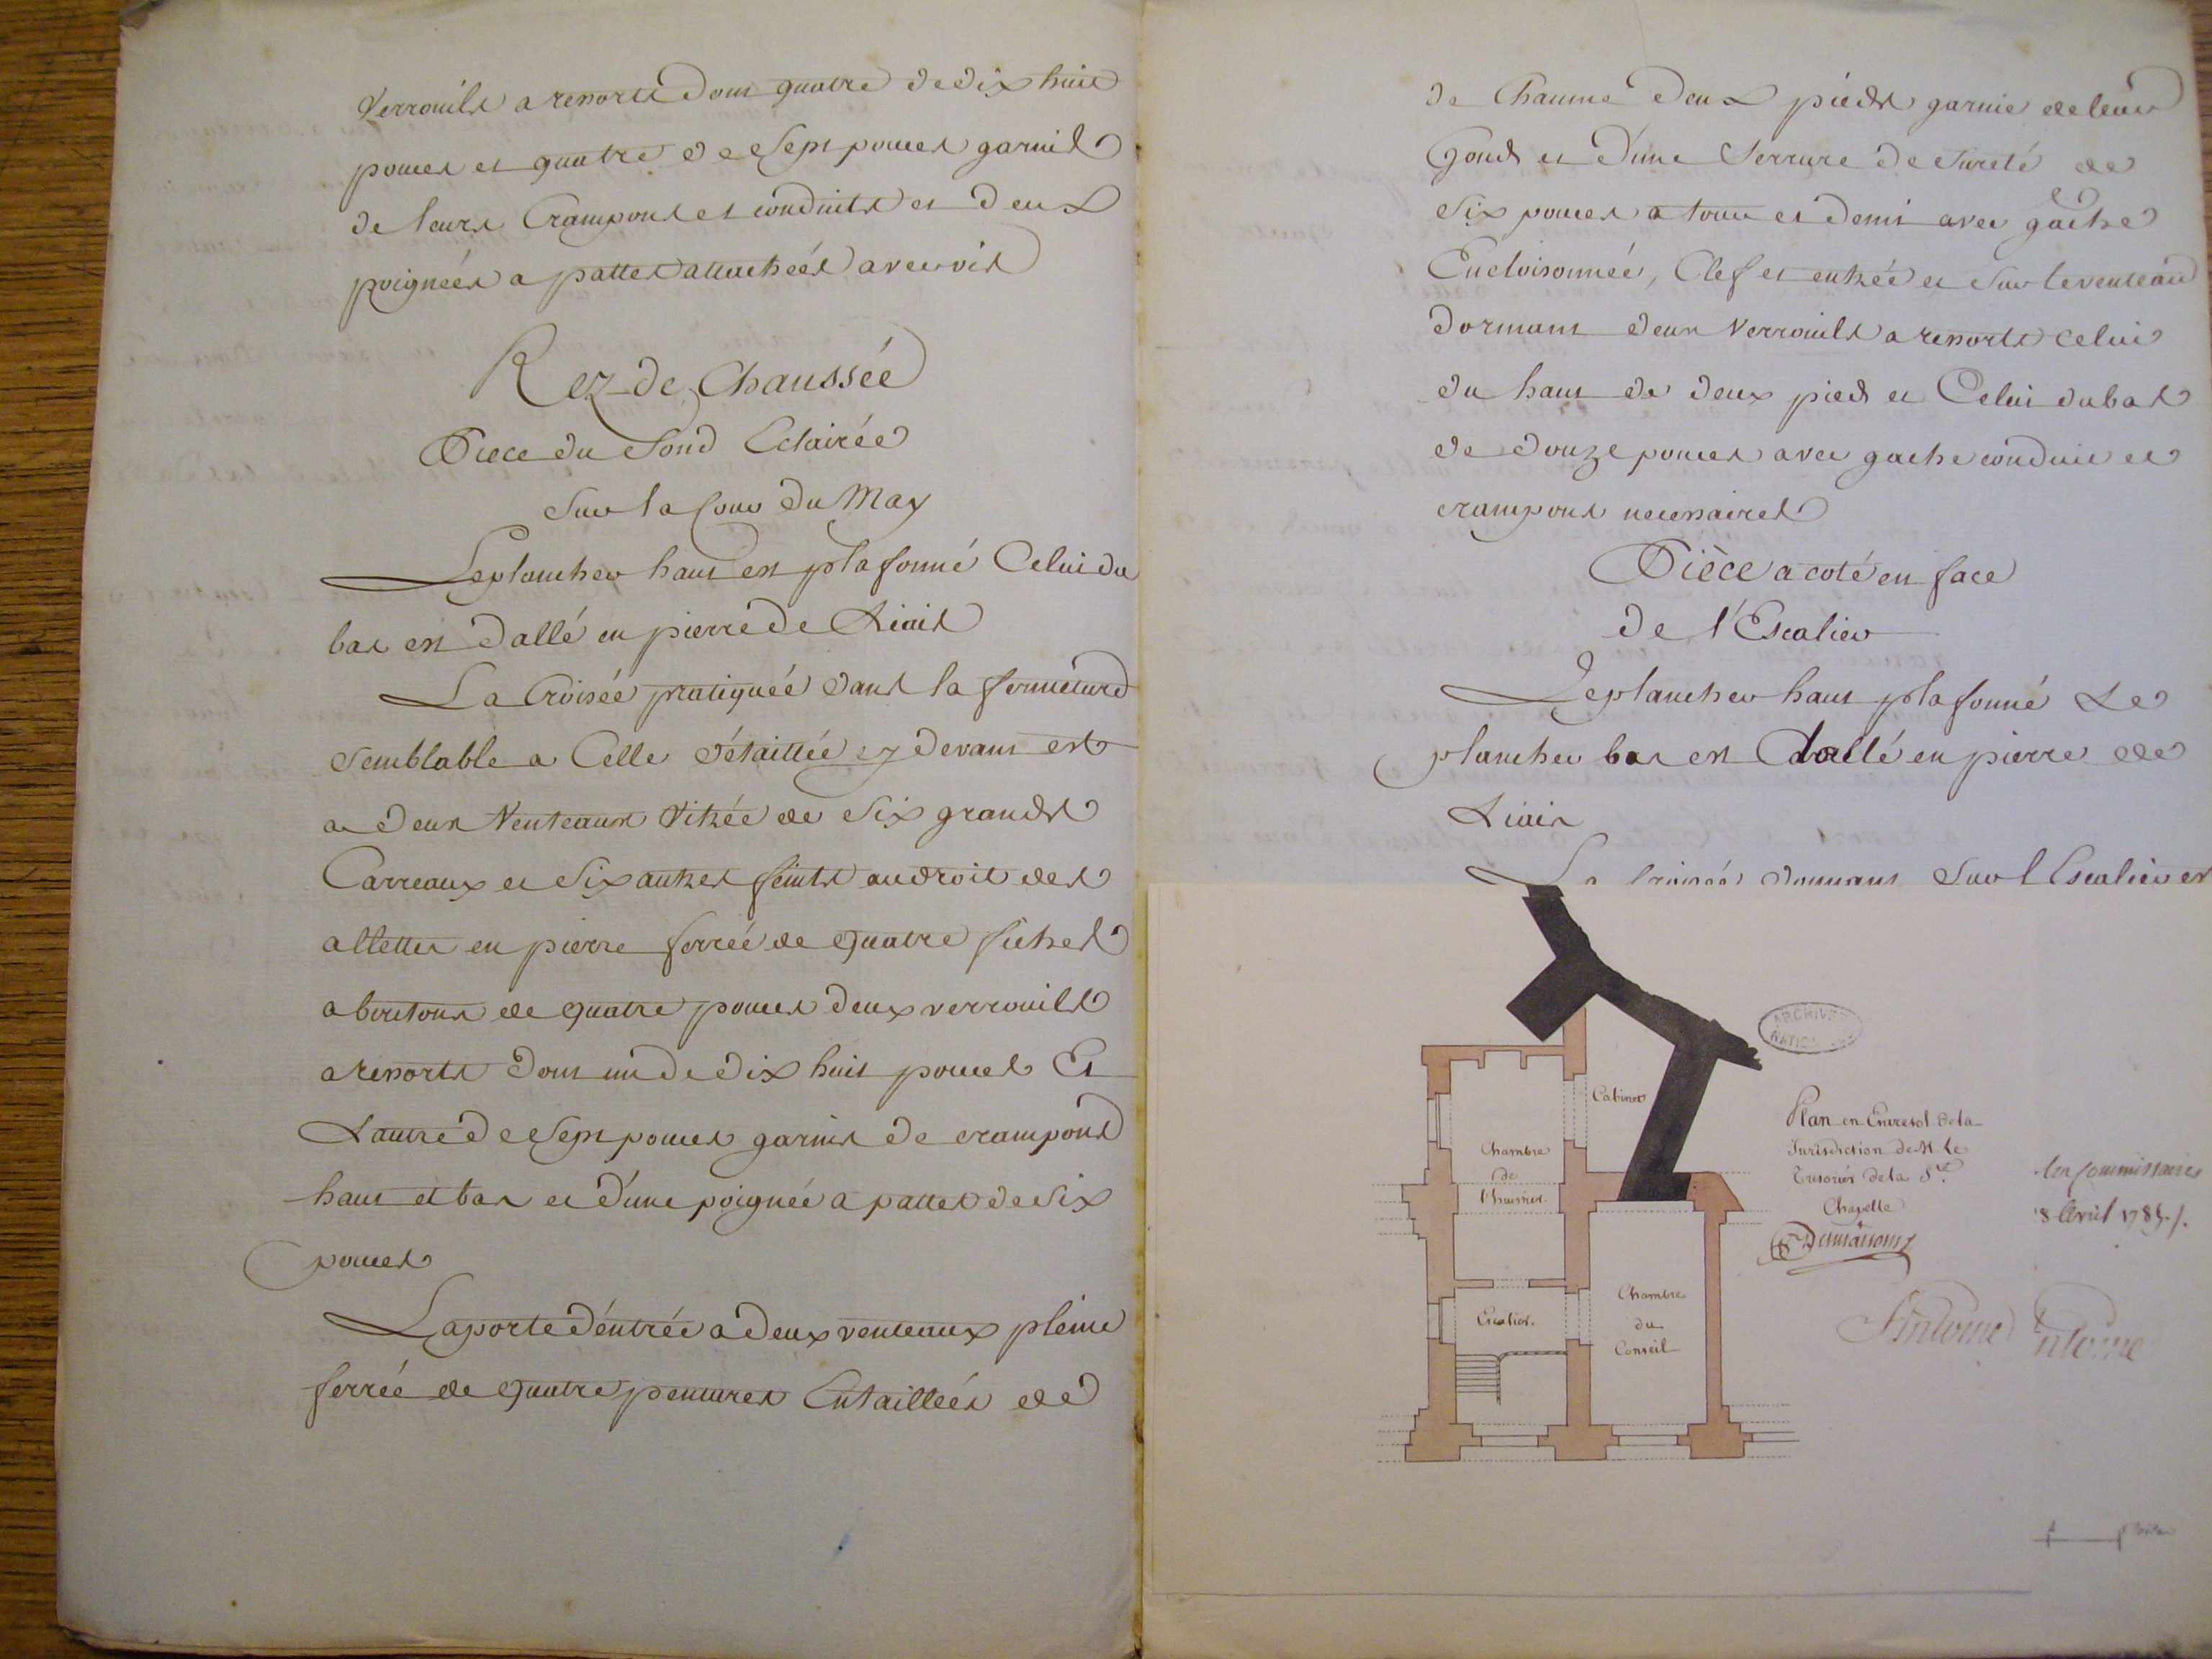 Verrouils a ressorts dont quatre de dix huit
pouces et quatre de Sept pouces garnis
de leurs Crampons et conduits et deux
poignées a pattes attachées avec vis
Rez-de Chaussée
Piece du fond Eclairée
Sur la Cour du May
Le plancher haut est plafonné Celui du
bas est dallé en pierre de Liais
La Croisée pratiquée dans la fermeture
Semblable a Celle détaillée cy devant est
a deux Venteaux Vitrée de Six grands
Carreaux et Six autres feints au droit des
allettes en pierre ferrée de quatre fiches
a boutons de quatre pouces deux verrouils
a ressorts dont un de dix huit pouces Et
L'autre de Sept pouces garnis de crampons
haut et bas et d'une poignée a pattes de Six
pouces
La porte d'entrée a deux venteaux pleine
ferrée de quatre pentures Entaillées de
de Chaune deux pieds garnie de leurs
Gonds et d'une Serrure de Sureté de
Six pouces a tour et demi avec gache
Encloisonnée, Clef et entrée et Sur le venteau
dormant deux Verrouils a ressorts celui
du haut de deux pieds et Celui du bas
de douze pouces avec gache conduit et
crampons necessaires
Pièce a coté en face
de l'Escalier
Le plancher haut plafonné Le
plancher bas est dallé en pierre de
Liais
La Croisée donnant Sur l'Escalier est
ARCHIVES
NATIONALES
Cabinet
Chambre
de
l'huissier
Escalier.
Chambre
du
Conseil
Plan en Entresol de la
Jurisdiction de M. Le
Trésorier de la Ste.
Chapelle
Desmaisons
les Commissaires
8 Avril 1785./.
Antoine
ntoine